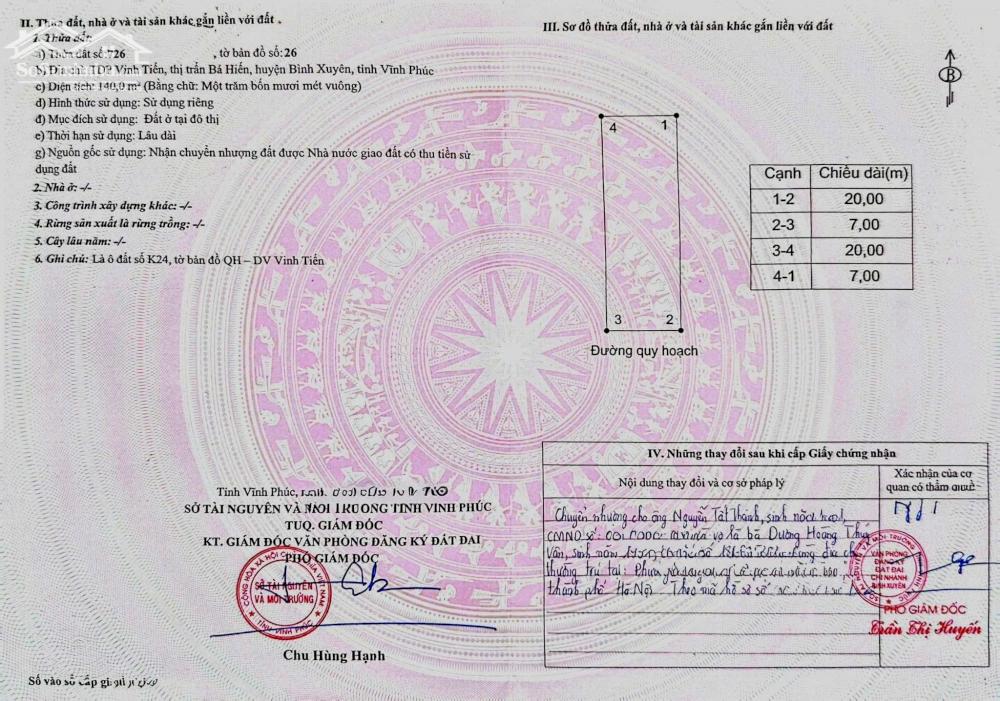 II. Thửa đất, nhà ở và tài sản khác gắn liền với đất
1. Thửa đất:
a) Thửa đất số: 726 , tờ bản đồ số: 26
b) Địa chỉ: TDP Vinh Tiến, thị trấn Bá Hiến, huyện Bình Xuyên, tỉnh Vĩnh Phúc
c) Diện tích: 140,0 m² (Bằng chữ: Một trăm bốn mươi mét vuông)
d) Hình thức sử dụng: Sử dụng riêng
đ) Mục đích sử dụng: Đất ở tại đô thị
e) Thời hạn sử dụng: Lâu dài
g) Nguồn gốc sử dụng: Nhận chuyển nhượng đất được Nhà nước giao đất có thu tiền sử
dụng đất
2. Nhà ở: -/-
3. Công trình xây dựng khác: -/-
4. Rừng sản xuất là rừng trồng: -/-
5. Cây lâu năm: -/-
6. Ghi chú: Là ô đất số K24, tờ bản đồ QH – DV Vinh Tiến
Tỉnh Vĩnh Phúc,
SỞ TÀI NGUYÊN VÀ MÔI TRƯỜNG TỈNH VĨNH PHÚC
TUQ. GIÁM ĐỐC
KT. GIÁM ĐỐC VĂN PHÒNG ĐĂNG KÝ ĐẤT ĐAI
PHÓ GIÁM ĐỐC
CỘNG HÒA XÃ HỘI CHỦ NGHĨA VIỆT NAM
SỞ TÀI NGUYÊN
VÀ MÔI TRƯỜNG
TỈNH VĨNH PHÚC
Chu Hùng Hạnh
Số vào sổ cấp
III. Sơ đồ thửa đất, nhà ở và tài sản khác gắn liền với đất
B
4 1
3 2
Đường quy hoạch
Cạnh Chiều dài(m)
1-2 20,00
2-3 7,00
3-4 20,00
4-1 7,00
IV. Những thay đổi sau khi cấp Giấy chứng nhận
Nội dung thay đổi và cơ sở pháp lý
Xác nhận của cơ
quan có thẩm quyền
Chuyển nhượng cho ông Nguyễn Tất Thành, sinh năm
CMND số: và vợ là bà Dương Hoàng Thúy
Vân, sinh năm địa chỉ
thường trú tại: Phường
thành phố Hà Nội. Theo mã hồ sơ số
VĂN PHÒNG
ĐĂNG KÝ
ĐẤT ĐAI
CHI NHÁNH
BÌNH XUYÊN
PHÓ GIÁM ĐỐC
Trần Thị Huyến